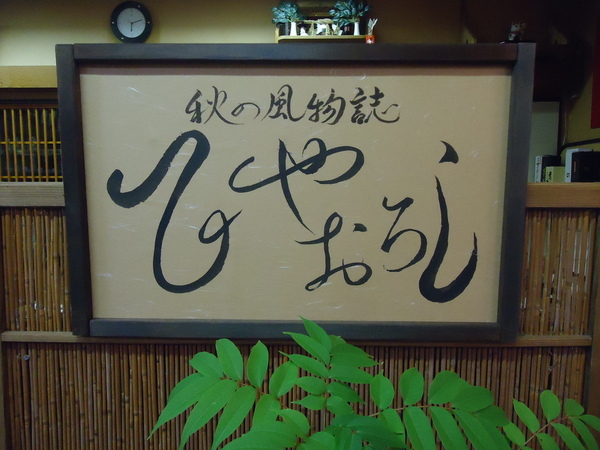 秋の風物誌
ひやおろし